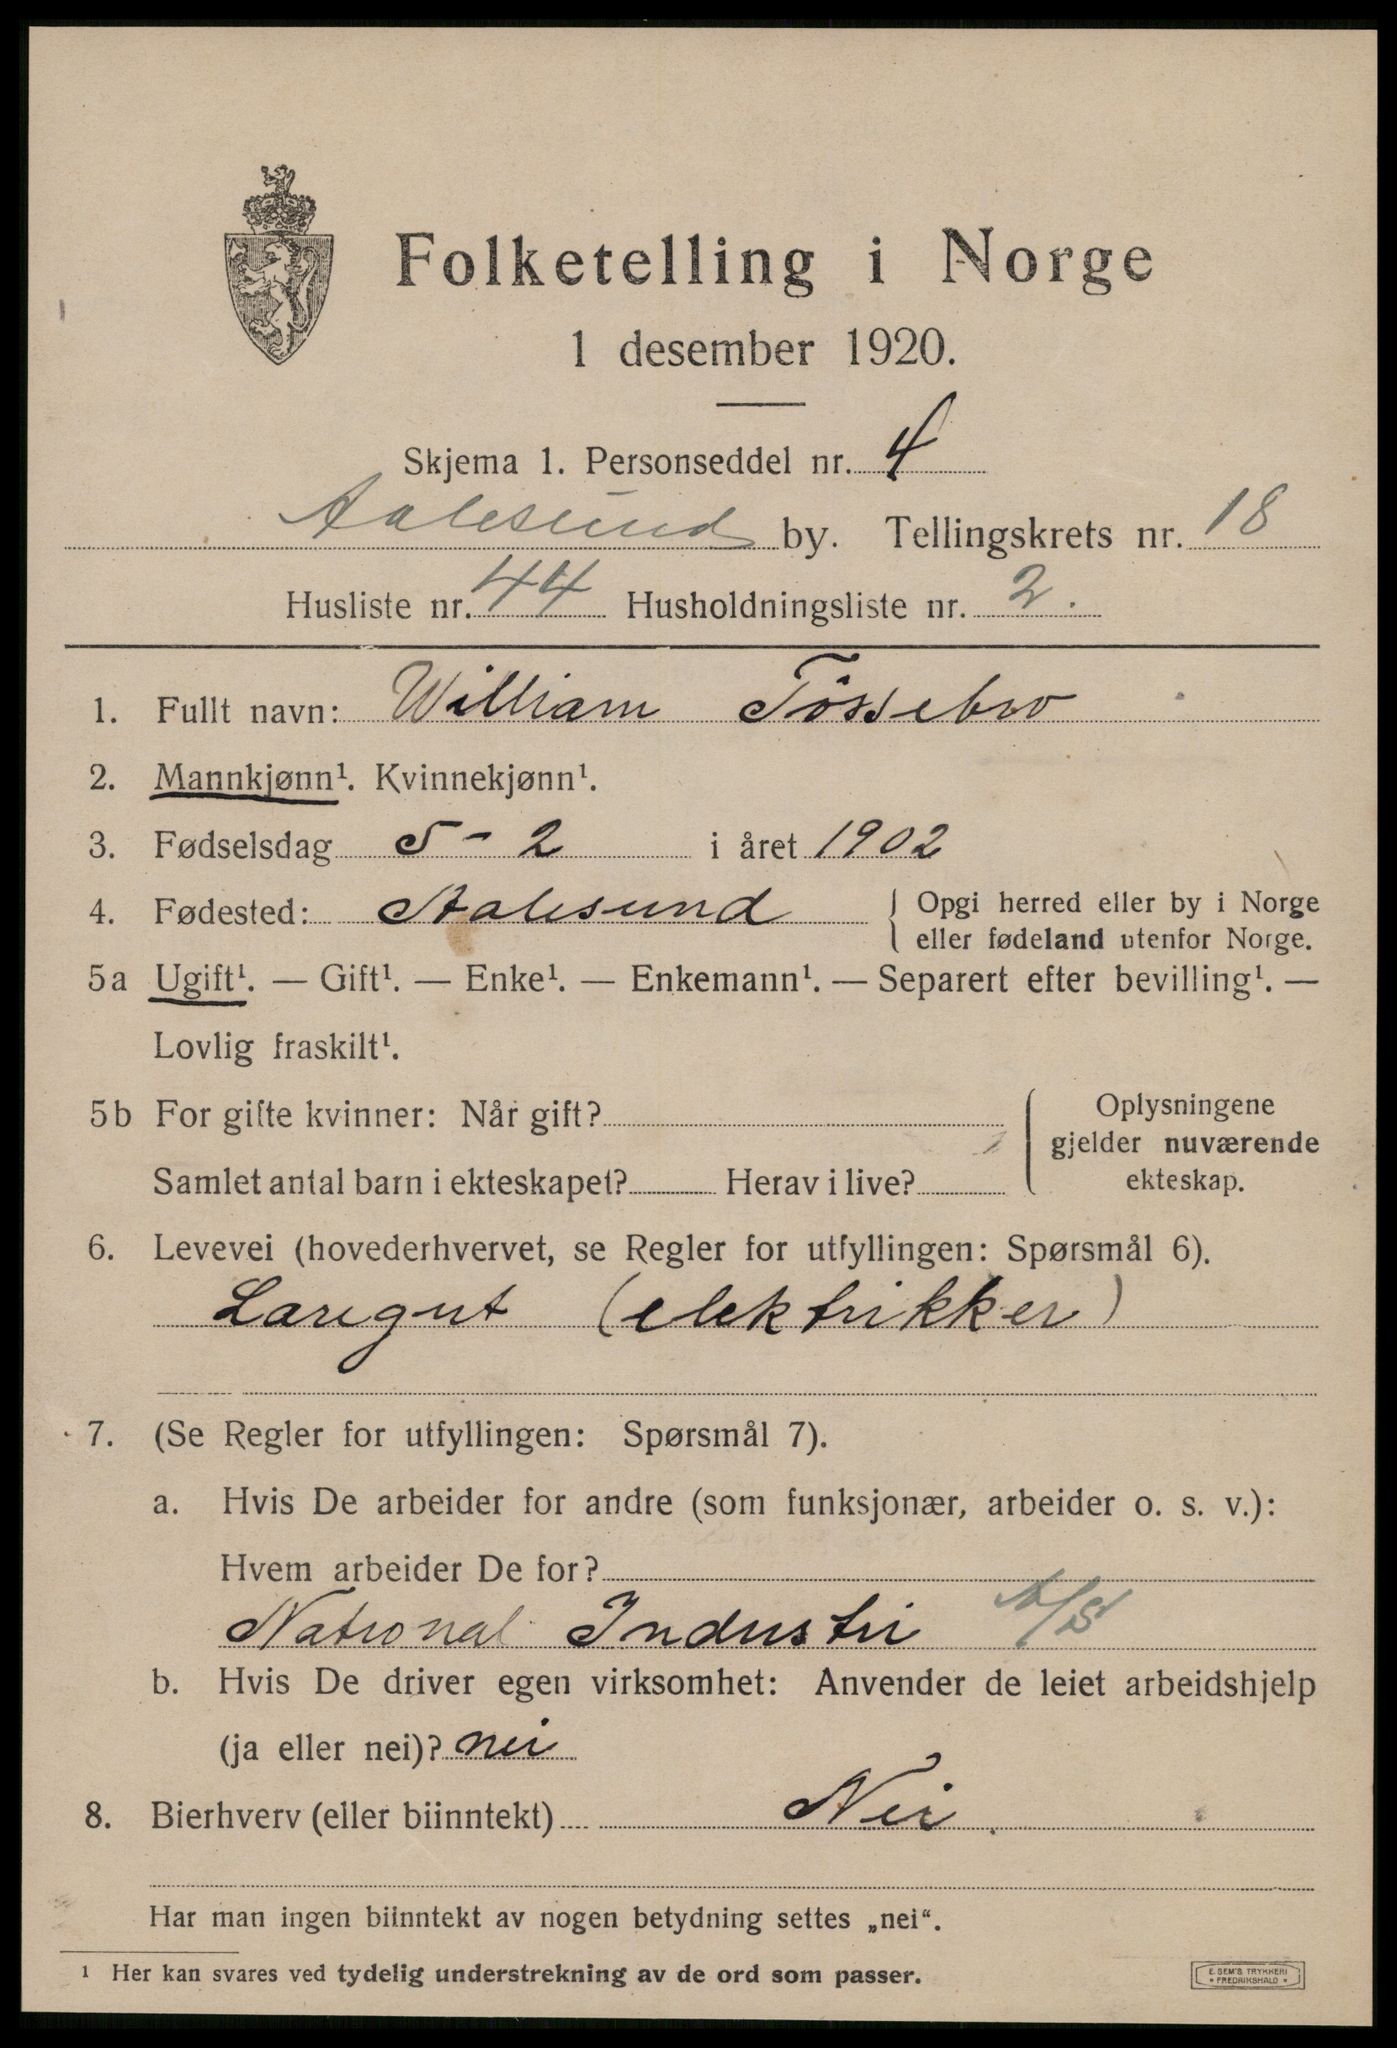 Folketelling i Norge
1 desember 1920.
Skjema 1. Personseddel nr. 4
Aalesund by. Tellingskrets nr. 18
Husliste nr. 44 Husholdningsliste nr. 2.
1. Fullt navn: William Tössebro
2. Mannkjønn¹. Kvinnekjønn¹.
3. Fødselsdag 5 - 2 i året 1902
4. Fødested: Aalesund { Opgi herred eller by i Norge
eller fødeland utenfor Norge.
5a Ugift¹. — Gift¹. — Enke¹. — Enkemann¹. — Separert efter bevilling¹. —
Lovlig fraskilt¹.
5b For gifte kvinner: Når gift?
Samlet antal barn i ekteskapet? Herav i live?
{ Oplysningene
gjelder nuværende
ekteskap.
6. Levevei (hovederhvervet, se Regler for utfyllingen: Spørsmål 6).
Laregut (elektrikker)
7. (Se Regler for utfyllingen: Spørsmål 7).
a. Hvis De arbeider for andre (som funksjonær, arbeider o. s. v.):
Hvem arbeider De for?
National Industri A/S
b. Hvis De driver egen virksomhet: Anvender de leiet arbeidshjelp
(ja eller nei)? nei
8. Bierhverv (eller biinntekt) Nei.
Har man ingen biinntekt av nogen betydning settes „nei“.
¹ Her kan svares ved tydelig understrekning av de ord som passer.
E. SEM'S TRYKKERI
• FREDRIKSHALD •